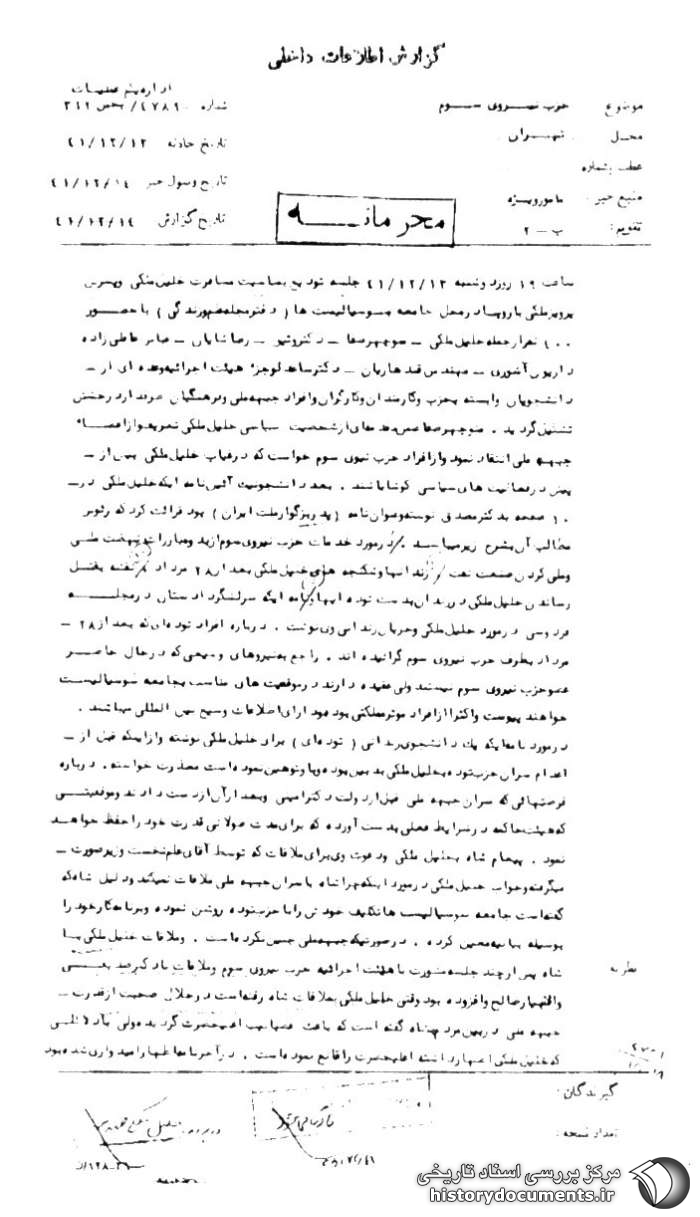 گزارش اطلاعات داخلی
از اداره یکم عملیات
موضوع حزب نیروی سوم
شماره ۴۷۸۹۰/ بخش ۳۱۲
محل تهران
تاریخ حادثه ۴۱/۱۲/۱۳
عطف بشماره
منبع خبر مامور ویژه
تاریخ وصول خبر ۴۱/۱۲/۱۴
تقویم: ب-۲
تاریخ گزارش ۴۱/۱۲/۱۴
محرمانه
ساعت ۱۹ روز دوشنبه ۴۱/۱۲/۱۳ جلسه تودیع بمناسبت مسافرت خلیل ملکی و پسرش
پرویز ملکی باروپا در محل جامعه سوسیالیست ها (دفتر مجله علم و زندگی) با حضور
۱۰۰ نفر از جمله خلیل ملکی – منوچهر صفا – دکتر وثیق – رضا شایان – عباس عاقلی زاده
داریوش آشوری – مهندس قندهاریان – دکتر ساعدلو جزء هیئت اجرائیه و عده ای از –
دانشجویان وابسته بحزب و کارمندان و کارگران و افراد جبهه ملی و فرهنگیان
تشکیل گردید. منوچهر صفا ضمن از شخصیت سیاسی خلیل ملکی تعریف و از اعضاء
جبهه ملی انتقاد نمود و از افراد حزب نیروی سوم خواست که در غیاب خلیل ملکی بیش از –
پیش در فعالیت های سیاسی کوشا باشند. بعد دانشجویت آئین نامه ایکه خلیل ملکی در –
۱۰ صفحه بدکتر مصدق نوشته و عنوان نامه (پدر بزرگوار ملت ایران) بود قرائت کرد که رئوس
مطالب آن بشرح زیر میباشد. در مورد خدمات حزب نیروی سوم از بدو مبارزات نهضت ملی
و ملی کردن صنعت نفت زندانها و شکنجه های خلیل ملکی بعد از ۲۸ مرداد نقشه بقتل
رساندن خلیل ملکی در زندان بدست توده ایها و نامه ایکه سرلشگر دادستان در مجله
فردوسی در مورد خلیل ملکی و جریان زندانی وی نوشت. درباره افراد توده ای که بعد از ۲۸ –
مرداد بطرف حزب نیروی سوم گرائیده اند. راجع به نیروهای وسیعی که در حال حاضر
عضو حزب نیروی سوم نیستند ولی عقیده دارند در موقعیت های مناسب بجامعه سوسیالیست
خواهند پیوست و اکثرا از افراد موثر مملکتی بوده و دارای اطلاعات وسیع بین المللی میباشند.
در مورد نامه ایکه یک دانشجوی زندانی (توده ای) برای خلیل ملکی نوشته و از اینکه قبل از –
اعدام سران حزب توده بخلیل ملکی بدبین بوده و باو توهین نموده است معذرت خواسته. درباره
فرصتهائی که سران جبهه ملی قبل از دولت دکتر امینی و بعد از آن از دست دادند و موقعیتی
که هیئت حاکمه در شرایط فعلی بدست آورده که برای مدت طولانی قدرت خود را حفظ خواهد
نمود. پیغام شاه بخلیل ملکی و دعوت وی برای ملاقات که توسط آقای علم نخست وزیر صورت –
میگرفته و جواب خلیل ملکی در مورد اینکه چرا شاه با سران جبهه ملی ملاقات نمیکند و دلیل شاه که
گفته است جامعه سوسیالیست ها تکلیف خودش را با حزب توده روشن نموده و برنامه کار خود را
بوسیله بیانیه معین کرده. در صورتیکه جبهه ملی چنین نکرده است. و ملاقات خلیل ملکی با
شاه پس از چند جلسه مشورت با هیئت اجرائیه حزب نیروی سوم و ملاقات با دکتر
و اللهیار صالح و افزوده بود وقتی خلیل ملکی بملاقات شاه رفته است در خلال صحبت از قدرت –
جبهه ملی در بین مردم بشاه گفته است که باعث عصبانیت اعلیحضرت گردیده ولی با دلائلی
که خلیل ملکی اظهار داشته اعلیحضرت را قانع نموده است. در آخر نامه اظهار امیدواری شده بود
نظریه
گیرندگان:
تعداد نسخه:
مرکز بررسی اسناد تاریخی
historydocuments.ir